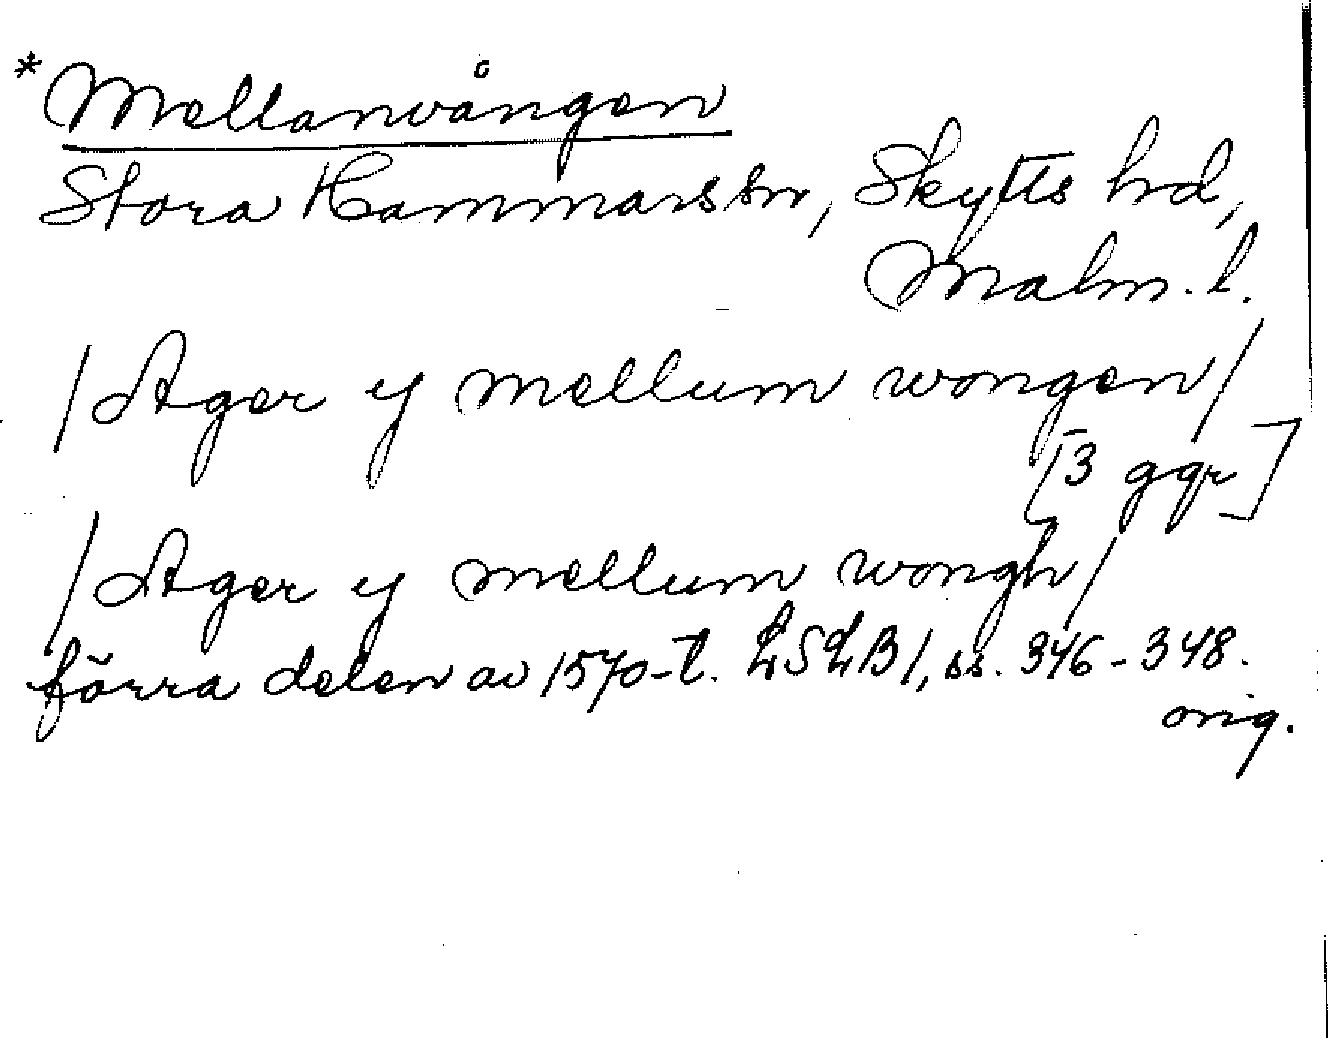 *Mellanvången
Stora Hammars sn, Skytts hd,
Malm. l.
/Ager y mellum wongen/
[3 ggr]
/Ager y mellum wongh/
förra delen av 1570-t. LSLB 1, ss. 346-348.
orig.